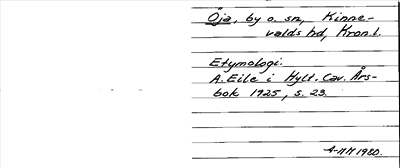 Öja, by o. sn, Kinne-
valds hd, Kron.l.
Etymologi.
A. Eile i Hylt. Cav. Års-
bok 1925, s. 23.
A-MM 1980.